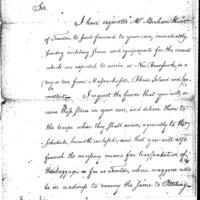 Sir
I have requested Mr Abraham
of Taunton to send forward to your care, immediately
sundry military stores and equipments for the recruits
who are expected to arrive at New Brunswick, in a
day or two from Massachusetts, Rhode Island and
I request the favor that you will
these stores in your care, and deliver them to
the troops when they shall arrive, agreeably to the
schedule herewith enclosed; and that you will also
furnish the necessary means for transportation of
the baggage as far as Trenton, where waggons will
be in readiness to convey the same to Pittsburg